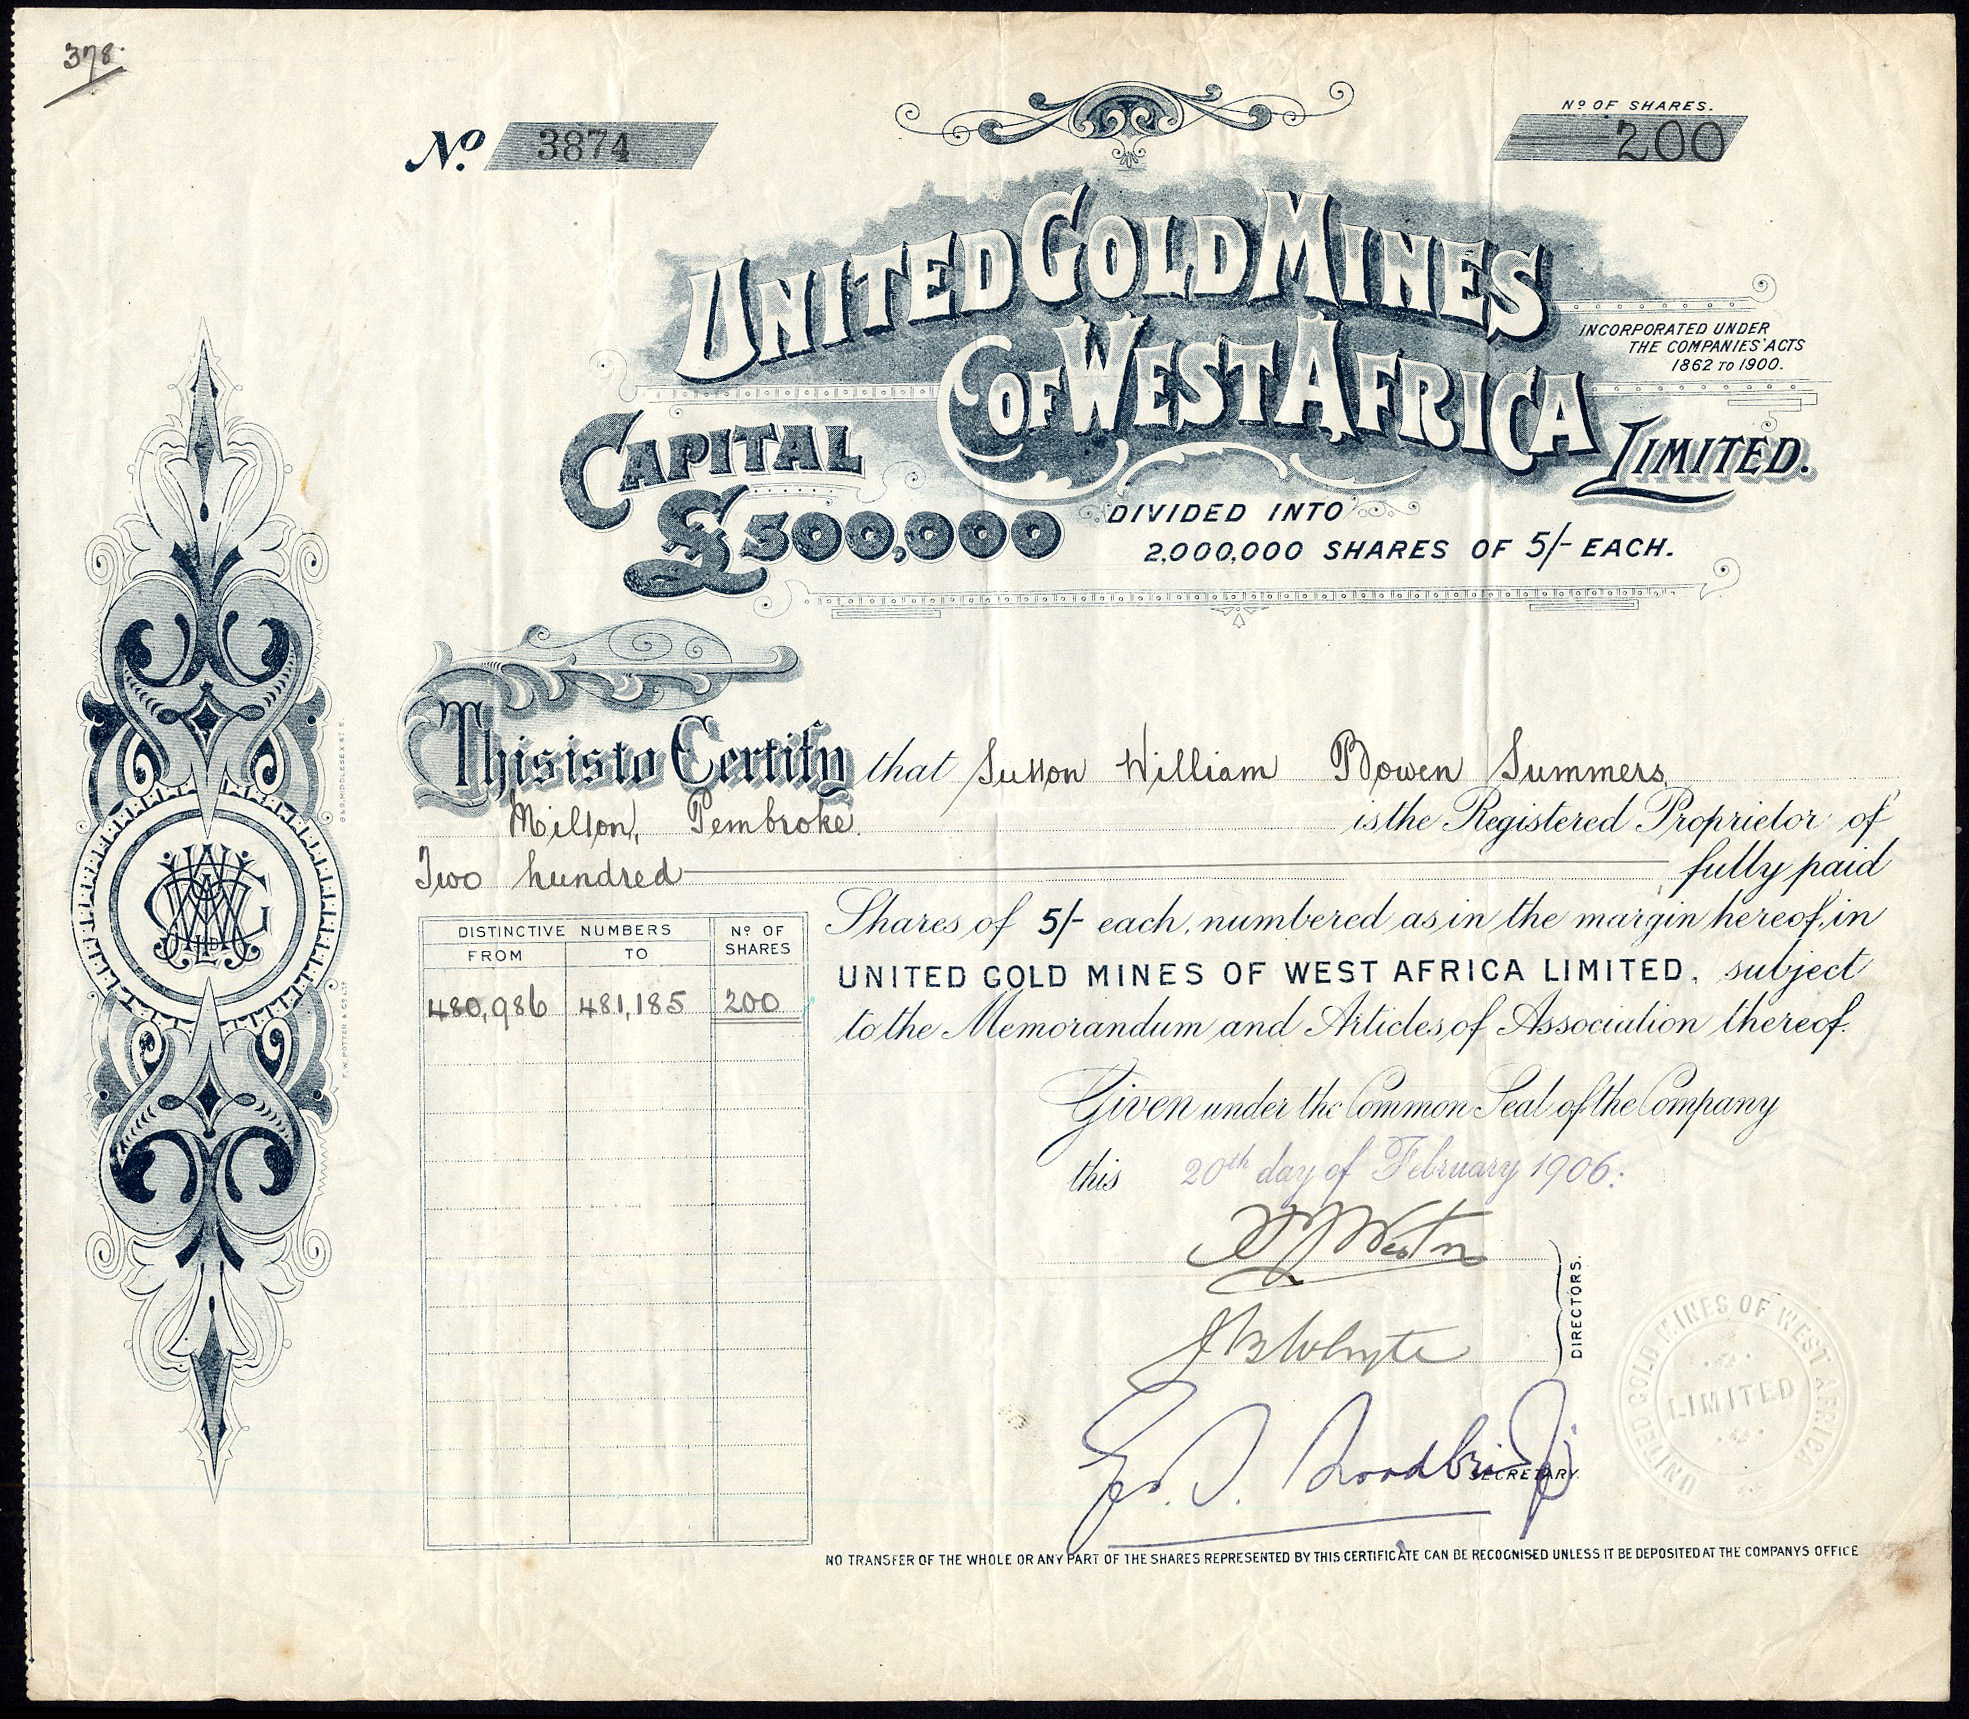 378.
Nº 3874
Nº OF SHARES.
200
UNITED GOLD MINES
OF WEST AFRICA
LIMITED.
INCORPORATED UNDER
THE COMPANIES' ACTS
1862 TO 1900.
CAPITAL
£500,000
DIVIDED INTO
2,000,000 SHARES OF 5/- EACH.
This is to Certify that Sutton William Bowen Summers
Milton, Pembroke. is the Registered Proprietor of
Two hundred fully paid
Shares of 5/- each, numbered as in the margin hereof, in
UNITED GOLD MINES OF WEST AFRICA LIMITED, subject
to the Memorandum and Articles of Association thereof.
DISTINCTIVE NUMBERS Nº OF SHARES
FROM TO
480,986 481,185 200
Given under the Common Seal of the Company
this 20th day of February 1906:
J B Whyte
DIRECTORS.
SECRETARY.
UNITED GOLD MINES OF WEST AFRICA
LIMITED
NO TRANSFER OF THE WHOLE OR ANY PART OF THE SHARES REPRESENTED BY THIS CERTIFICATE CAN BE RECOGNISED UNLESS IT BE DEPOSITED AT THE COMPANYS OFFICE
F. W. POTTER & CO LTD
MIDDLESEX ST E.